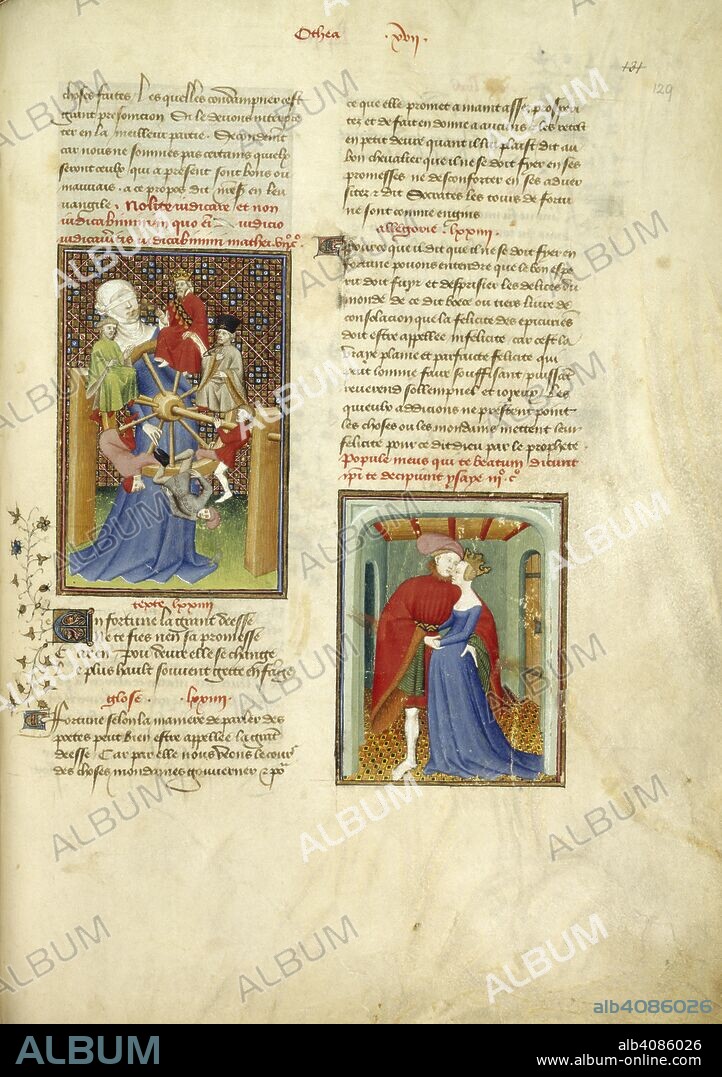 Othea .xvii.
131
129
choses faites. Les quelles condampner cest
grant presoncion Si le devions interpre
ter en la meilleur partie. Secondemt
car nous ne sommes pas certains quelz
seront ceulx qui a present sont bons ou
mauvais. a ce propos dit en leu
vangile. Nolite iudicare et non
iudicabimini in quo iudicio
iudicaveritis iudicabimini mathei. vijo. co.
texte lxxiiij
En fortune la grant deesse
Ne te fies nen sa promesse
Car en pou deure elle se change
Le plus hault souvent gette en fange
glose . lxxiiij.
Fortune selon la maniere de parler des
poetes peut bien estre appellee la grant
deesse Car par elle nous veons le cours
des choses mondaines gouverner & por
ce que elle promet a maint assez prosperi
tez et de fait en donne a aucuns & les retolt
en petit deure quant il lui plaist dit au
bon chevalier que il ne se doit fyer en ses
promesses ne desconforter en ses adver
sitez & dit Socrates les tours de fortu
ne sont comme engins
allegorie lxxiiij.
Pour ce que il dit que il ne se doit fyer en
fortune pouons entendre que le bon espe
rit doit fuyr et desprisier les delices du
monde de ce dit boece ou tiers livre de
consolacion que la felicite des epicuriens
doit estre appellee infelicite car cest la
vraye plaine et parfaicte felicite qui
peut lomme faire souffisant puissant
reverend sollempnel et joyeux Les
quieulx adicions ne prestent point
les choses ou les mondains mettent leur
felicite pour ce dit dieu par le prophete
Popule meus qui te beatum dicunt
ipsi te decipiunt ysaye iijo. co
ALBUM
alb4086026
ALBUM
alb4086026
www.album-online.com